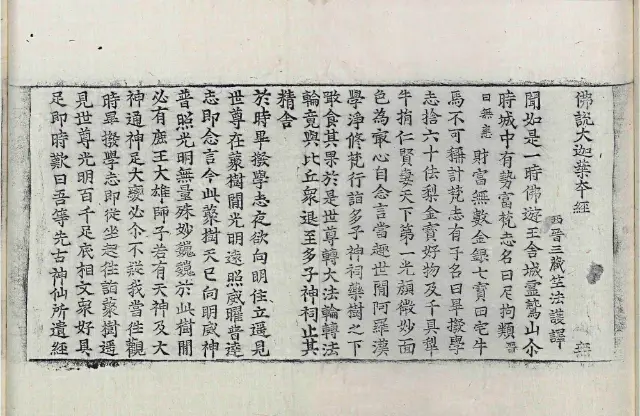 佛說大迦葉本經 無
西晉三藏竺法護譯
聞如是一時佛遊王舍城靈鷲山尒
時城中有勢富梵志名曰尼拘類晉
曰無恚 財富無數金銀七寶田宅牛
馬不可稱計梵志有子名曰畢撥學
志捨六十佉梨金寶好物及千具犁
牛捐仁賢妻天下第一光顏微妙面
色為最心自念言當趣世間阿羅漢
學淨修梵行詣多子神祠藂樹之下
敢食其果於是世尊轉大法輪轉法
輪竟與比丘眾退至多子神祠止其
精舍
於時畢撥學志夜欲向明住立遥見
世尊在藂樹間光明遠照威曜普達
志即念言今此藂樹天已向明威神
普照光明無量殊妙巍巍於此樹間
必有鹿王大雄師子若有天神及大
神通神足大必尒不疑我當往觀
時畢撥學志即從坐起往詣藂樹遥
見世尊光明百千足底相文眾好具
足即時歎曰吾等先古神仙所遺經